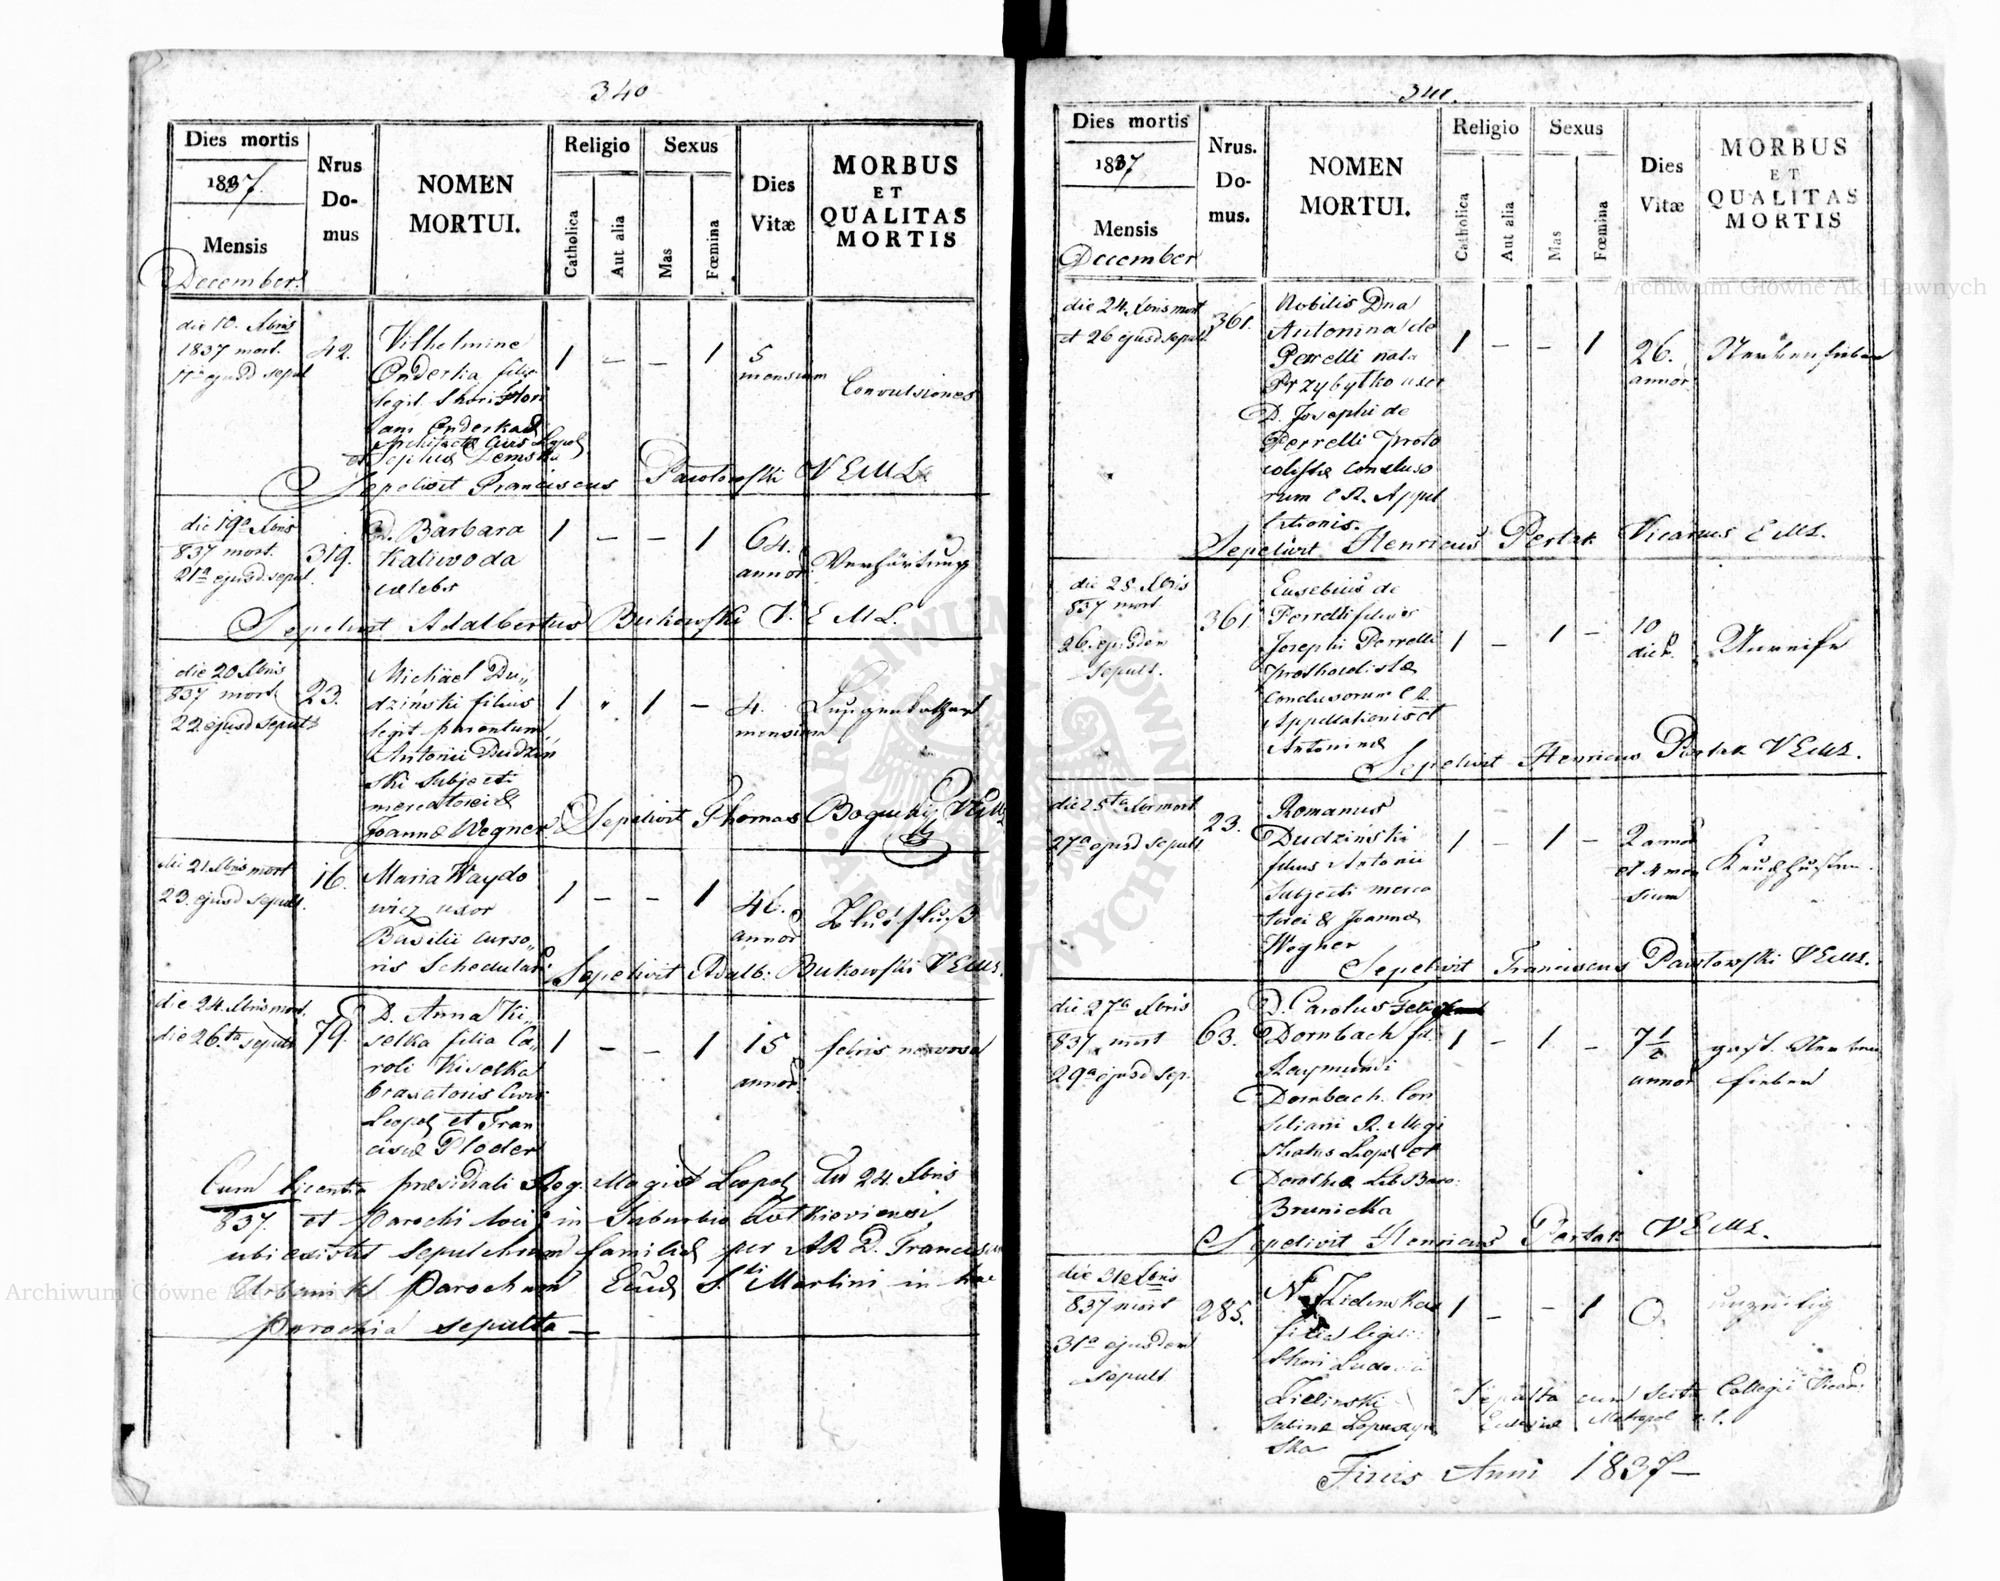 340
Dies mortis
1837.
Mensis
December.
Nrus
Do-
mus
NOMEN
MORTUI.
Religio
Catholica
Aut alia
Sexus
Mas
Fœmina
Dies
Vitæ
MORBUS
ET
QUALITAS
MORTIS
die 10. Xbris
1837 mort.
ejusd sepul
42.
Vilhelmine
Onderka filia
legit. thori Flori
ani Onderka
Architecta Civis Leopol
et Sophia
1 — — 1
5
mensium
Convulsiones
Sepelivit Franciscus Pawlowski V E M L
die 19a Xbris
837 mort.
21a ejusd. sepul.
319.
D. Barbara
Kaliwoda
celebs
1 — — 1
64.
annor
Verhärtung
Sepelivit Adalbertus Bukowski V. E M L.
die 20 Xbris
837 mort.
22. ejusd sepult
23.
Michael Du„
dzinski filius
legit. parentum
Antonii Dudzin
ski Subjecti
mercatorei &
Joanna Wegner
1 „ 1 —
4.
mensium
Sepelivit Thomas Bogucki VEML
die 21. Xbris mort
23. ejusd sepult.
16.
Maria Waydo
wicz uxor
Basilii curso„
ris Schedular:
1 — — 1
46.
annor
Blutfluß
Sepelivit Adalb: Bukowski VEML.
die 24. Xbris mort.
die 26ta sepult
79.
D. Anna Ki„
selka filia Ca„
roli Kiselka
braxatoris Civis
Leopol et Fran
cisca Ploder
1 — — 1
15
annor.
febris nervosa
Cum licentia præsidiali Reg. Magist Leopol dto 24. Xbris
837. et Parochi loci in Suburbio Zolkieviensi
ubi existit sepulchrum familiæ per AR D. Franciscum
Urbanik Parochum Eccl Sti Martini in hac
parochia sepulta —
341.
Dies mortis
1837
Mensis
December
Nrus.
Do-
mus.
NOMEN
MORTUI.
Religio
Catholica
Aut alia
Sexus
Mas
Fœmina
Dies
Vitæ
MORBUS
ET
QUALITAS
MORTIS
die 24. Xbris mort
et 26 ejusd sepult
361.
Nobilis Dna
Antonina de
Perrelli nata
Przybytko uxor
D. Josephi de
Perrelli Proto
colistæ conclusо
rum C R. Appel
lationis.
1 — — 1
26.
annor
Nervenfieber
Sepelivit Henricus Pertak Vicarius E ML.
die 25. Xbris
837 mort.
26. ejusdem
sepult.
361.
Eusebius de
Perrelli filius
Josephi Perrelli
Prothocolistæ
conclusorum C R.
Appellationis et
Antoninæ
1 — 1 —
10
dier.
Unreife
Sepelivit Henricus Pertak VEML.
die 25ta Xbr mort
27a ejusd sepult
23.
Romanus
Dudzinski
filius Antonii
Subjecti merca
torei & Joanna
Wegner
1 — 1 —
2 annor
et 4 men
sium
Keuchhusten.
Sepelivit Franciscus Pawlowski VEML.
die 27a Xbris
837 mort
29a ejusd sep.
63.
D. Carolus
Dornbach fil.
Raymundi
Dornbach Con
siliarii R. Magi
stratus Leopol et
Dorothea Lib Baro.
Brunicka
1 — 1 —
7 1/2
annor
gast. Nerven
fieber
Sepelivit Henricus Pertak VEML.
die 31a Xbris
837 mort
31a ejusdem
sepult.
285.
N. Zielinska
filia legit.
thori Ludovici
Zielinski
Sabina Lopuszyn
ska
1 — — 1
0.
unzeitig
Sepulta cum scitu Collegii Vicar:
Ecclesiæ Metropol r. l.
Finis Anni 1837 —
Archiwum Główne Akt Dawnych
Archiwum Główne Akt Dawnych
ARCHIWUM GŁÓWNE AKT DAWNYCH